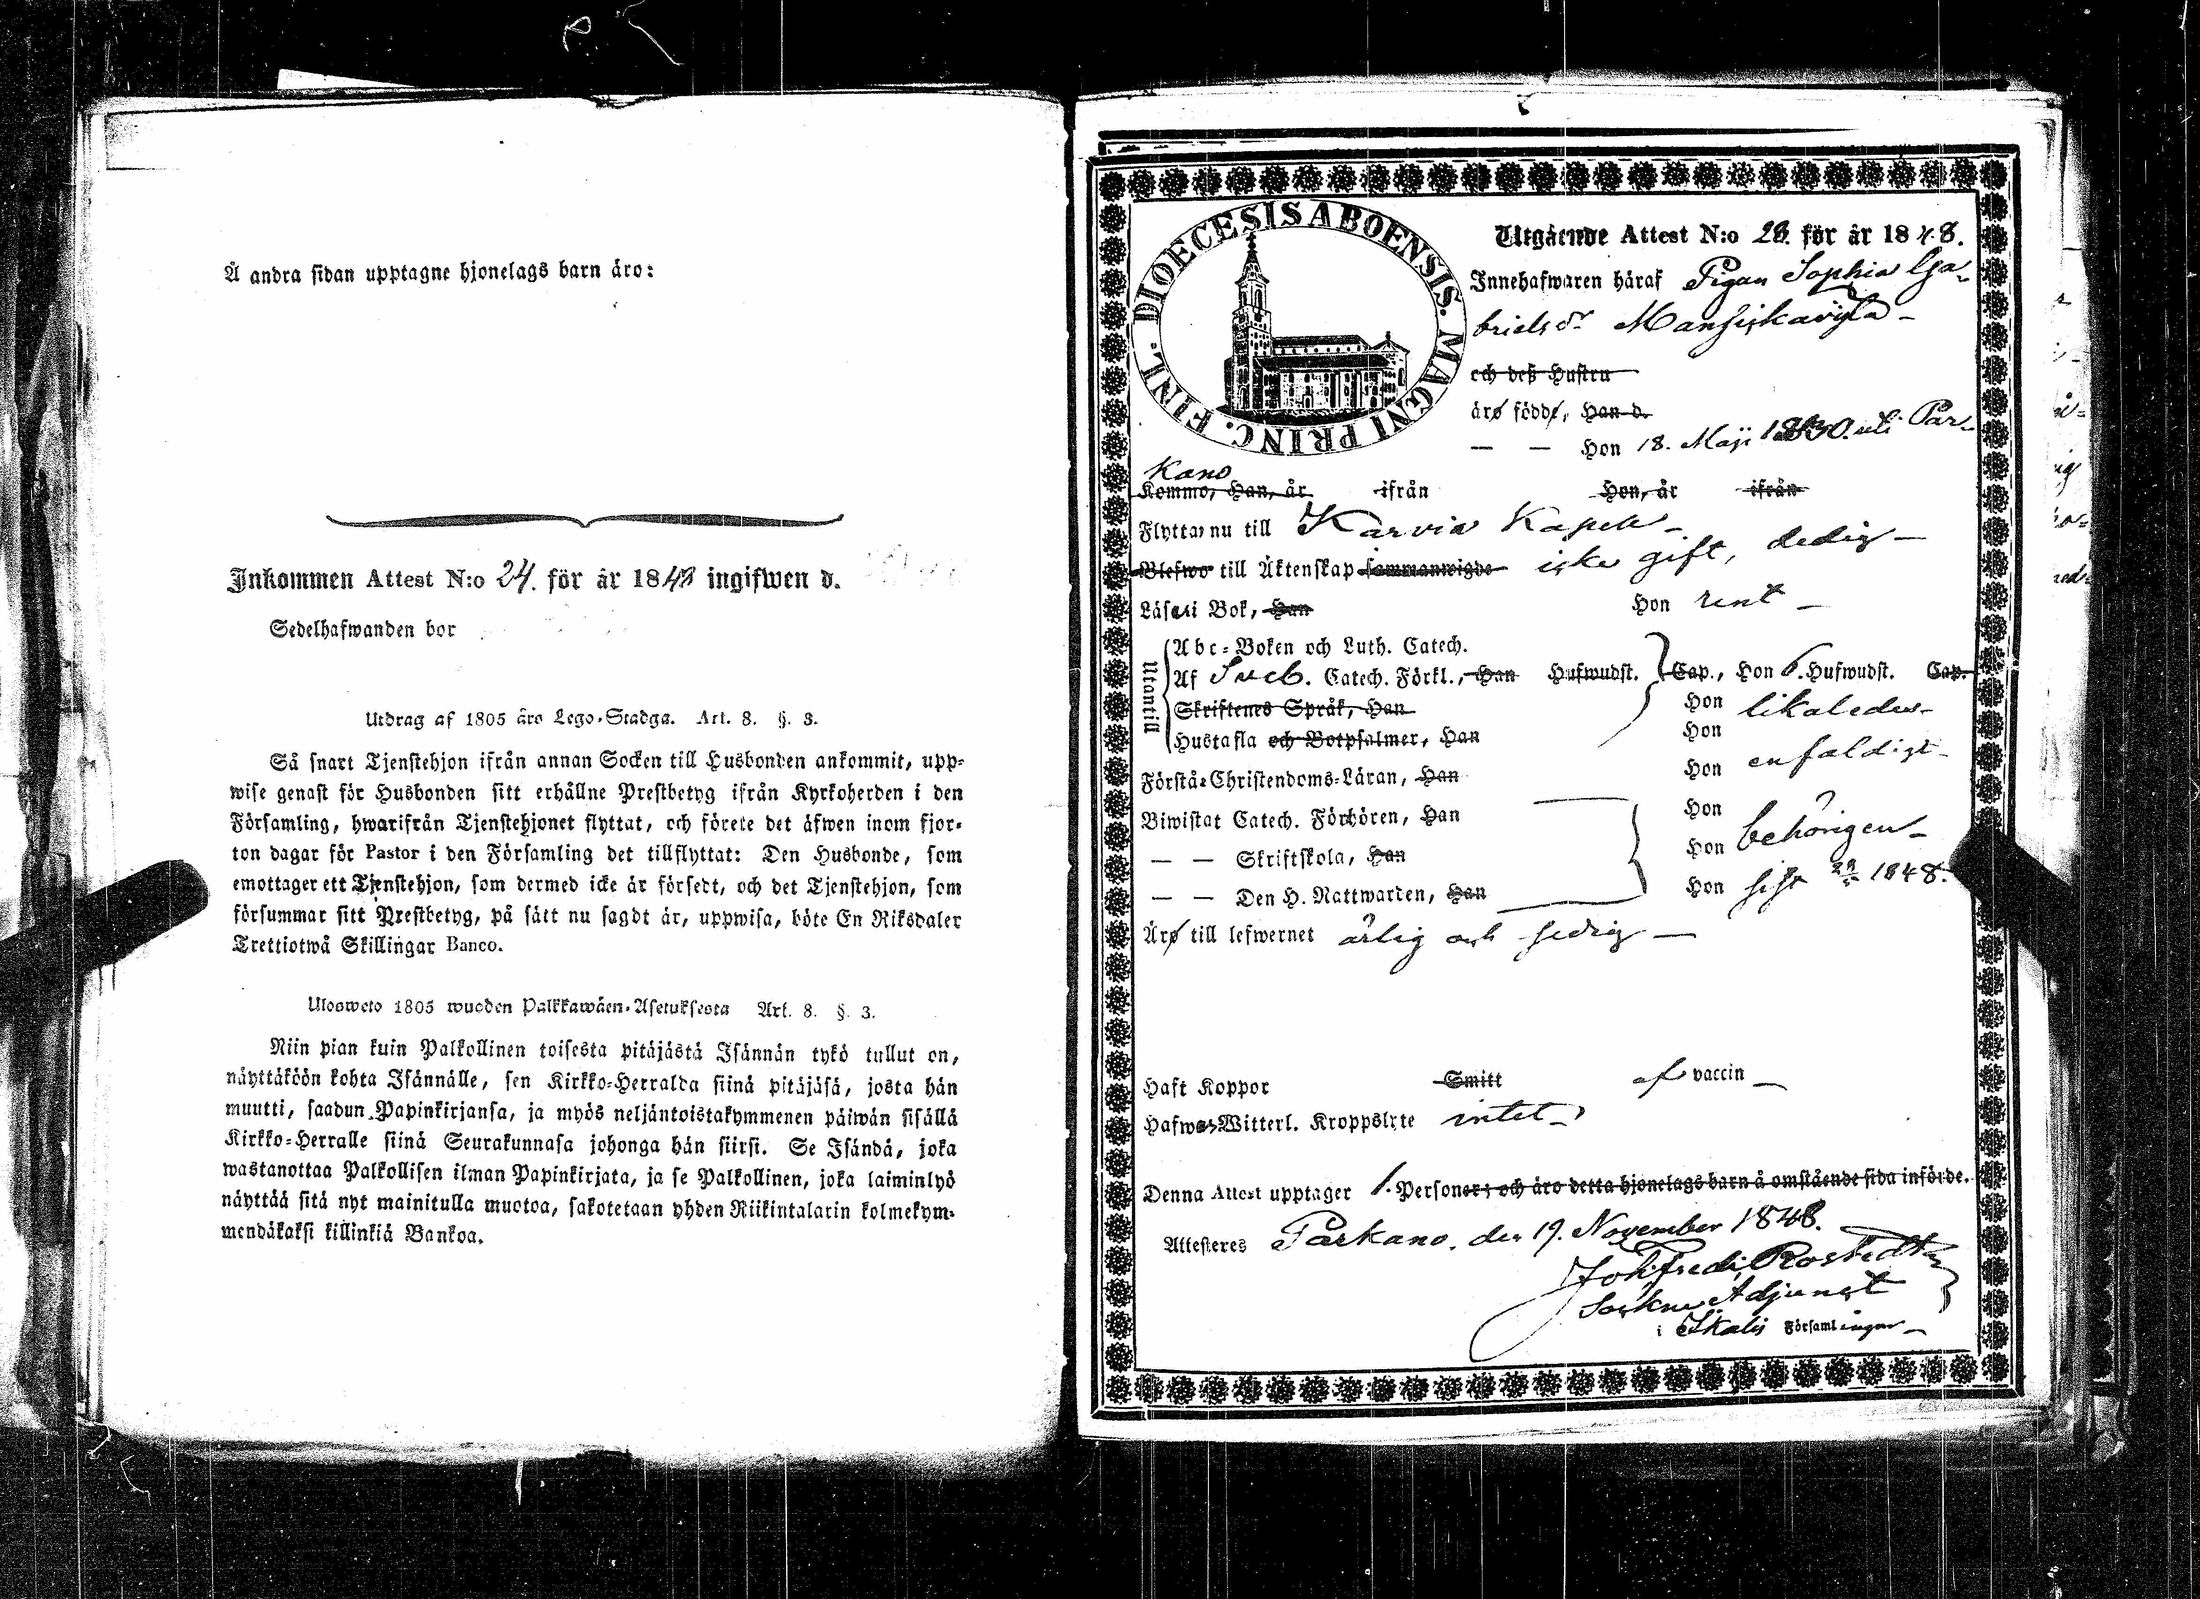 Å andra sidan upptagne hjonelags barn äro:
Inkommen Attest N:o 24. för år 1848 ingifwen d.
Sedelhafwanden bor
Utdrag af 1805 års Lego-Stadga. Art. 8. §. 3.
Så snart Tjenstehjon ifrån annan Socken till Husbonden ankommit, upp-
wise genast för Husbonden sitt erhållne Prestbetyg ifrån Kyrkoherden i den
Församling, hwarifrån Tjenstehjonet flyttat, och förete det äfwen inom fjor-
ton dagar för Pastor i den Församling det tillflyttat: Den Husbonde, som
emottager ett Tjenstehjon, som dermed icke är försedt, och det Tjenstehjon, som
försummar sitt Prestbetyg, på sätt nu sagdt är, uppwisa, böte En Riksdaler
Trettiotwå Skillingar Banco.
Ulosweto 1805 wuoden Palkkawäen-Asetuksesta Art. 8. §. 3.
Niin pian kuin Palkollinen toisesta pitäjästä Isännän tykö tullut on,
näyttäköön kohta Isännälle, sen Kirkko-Herralda siinä pitäjäsä, josta hän
muutti, saadun Papinkirjansa, ja myös neljäntoistakymmenen päiwän sisällä
Kirkko-Herralle siinä Seurakunnasa johonga hän siirsi. Se Isändä, joka
wastanottaa Palkollisen ilman Papinkirjata, ja se Palkollinen, joka laiminlyö
näyttää sitä nyt mainitulla muotoa, sakotetaan yhden Riikintalarin kolmekym-
mendäkaksi killinkiä Bankoa.
DIOECESIS ABOENSIS. MAGNI PRINC. FINL.
Utgående Attest N:o 28. för år 1848.
Innehafwaren häraf Pigan Sophia Ga-
brielsdr Mansiskavylä
och deß Hustru
äro födde, Han d.
— — Hon 18. Maji 1830. uti Par-
kano
Kommo, Han, år ifrån Hon, år ifrån
Flytta nu till Karvia Kapell
Blefwo till Äktenskap sammanwigde icke gift, ledig
Läsa i Bok, Han Hon rent
Utantill
Abc-Boken och Luth. Catech.
Af Sveb. Catech. Förkl., Han Hufwudst. Cap., Hon 6. Hufwudst. Cap.
Skriftenes Språk, Han Hon likaledes
Hustafla och Botpsalmer, Han Hon
Förstå Christendoms-Läran, Han Hon enfaldigt
Biwistat Catech. Förhören, Han Hon
— — Skriftskola, Han Hon behörigen
— — Den H. Nattwarden, Han Hon sist 1848.
Äro till lefwernet ärlig och sedig
Haft Koppor Smitt af vaccin
Hafwa Witterl. Kroppslyte intet
Denna Attest upptager 1. Personer; och äro detta hjonelags barn å omstående sida införde.
Attesteres Parkano, den 19. November 1848.
Joh. Fredr. Rostedt
Sockne Adjunct
i Ikalis Församlingar